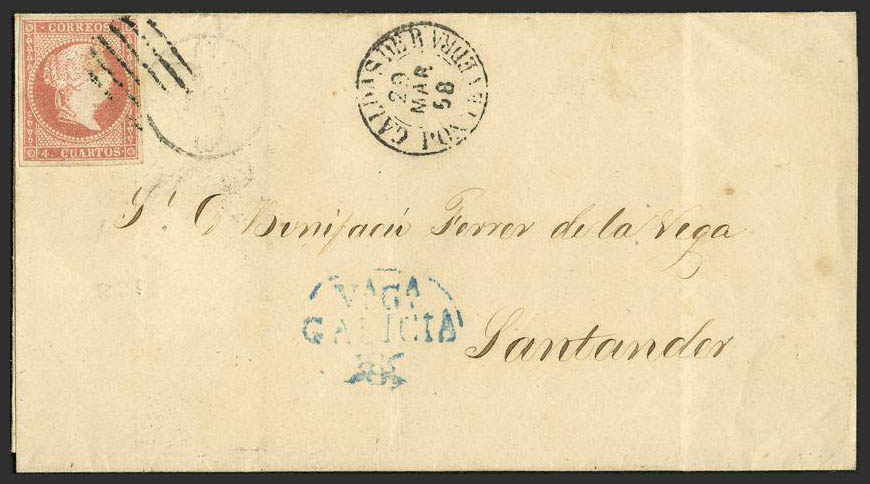 CORREOS
4. CUARTOS
CALDAS DE R
PONTEVEDRA
29
MAR
58
Sr. D. Bonifacio Ferrer de la Vega
VAGA
GALICIA
Santander